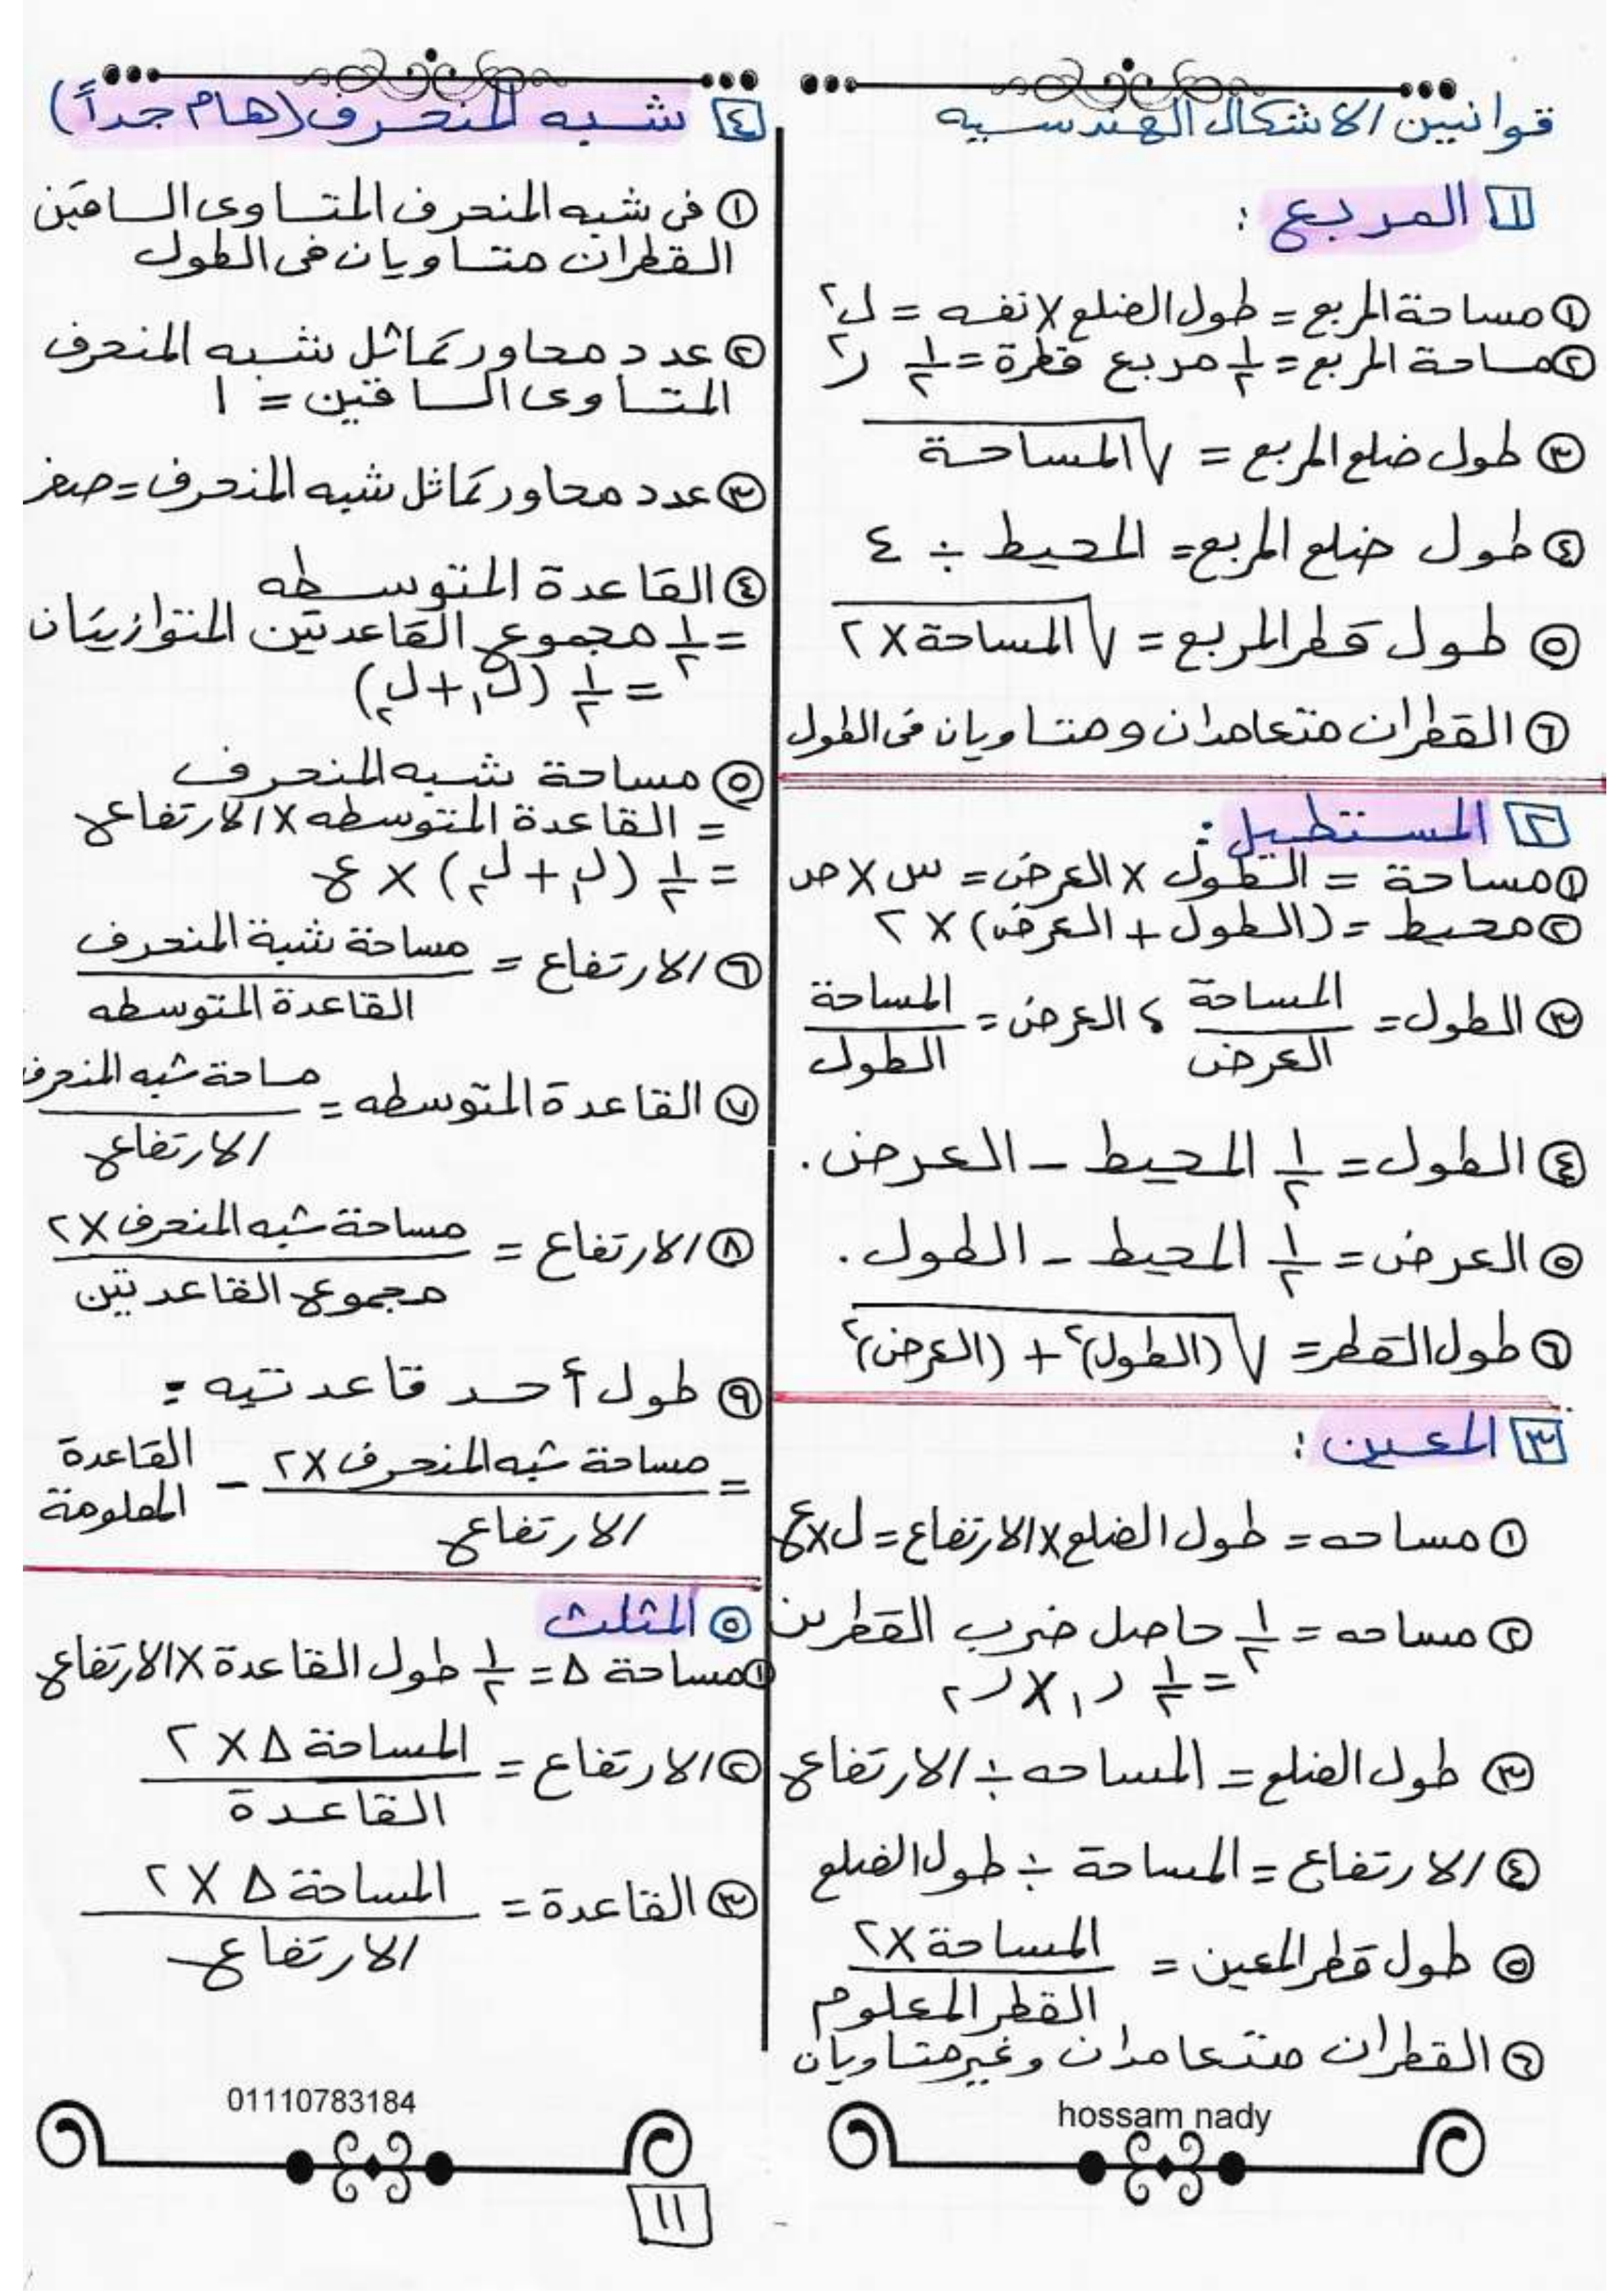 قوانين الاشكال الهندسيه
١ المربع :
١ مساحة المربع = طول الضلع × نفسه = ل٢
٢ مساحة المربع = ١/٢ مربع قطرة = ١/٢ ر٢
٣ طول ضلع المربع = √المساحة
٤ طول ضلع المربع = المحيط ÷ ٤
٥ طول قطر المربع = √المساحة × ٢
٦ القطران متعامدان ومتساويان فى الطول
٢ المستطيل :
١ مساحة = الطول × العرض = س × ص
٢ محيط = (الطول + العرض) × ٢
٣ الطول = المساحة/العرض ، العرض = المساحة/الطول
٤ الطول = ١/٢ المحيط - العرض .
٥ العرض = ١/٢ المحيط - الطول .
٦ طول القطر = √(الطول)٢ + (العرض)٢
٣ المعين :
١ مساحه = طول الضلع × الارتفاع = ل × ع
٢ مساحه = ١/٢ حاصل ضرب القطرين
= ١/٢ ر١ × ر٢
٣ طول الضلع = المساحه ÷ الارتفاع
٤ الارتفاع = المساحة ÷ طول الضلع
٥ طول قطر المعين = المساحة × ٢/القطر المعلوم
٦ القطران متعامدان وغير متساويان
hossam nady
٤ شبه المنحرف (هام جداً)
١ فى شبه المنحرف المتساوى الساقين
القطران متساويان فى الطول
٢ عدد محاور تماثل شبه المنحرف
المتساوى الساقين = ١
٣ عدد محاور تماثل شبه المنحرف = صفر
٤ القاعدة المتوسطه
= ١/٢ مجموع القاعدتين المتوازيتان
= ١/٢ (ل١ + ل٢)
٥ مساحة شبه المنحرف
= القاعدة المتوسطه × الارتفاع
= ١/٢ (ل١ + ل٢) × ع
٦ الارتفاع = مساحة شبة المنحرف/القاعدة المتوسطه
٧ القاعدة المتوسطه = مساحة شبه المنحرف/الارتفاع
٨ الارتفاع = مساحة شبه المنحرف × ٢/مجموع القاعدتين
٩ طول أحد قاعدتيه :
= مساحة شبه المنحرف × ٢/الارتفاع - القاعدة المعلومة
٥ المثلث
١ مساحة Δ = ١/٢ طول القاعدة × الارتفاع
٢ الارتفاع = المساحة Δ × ٢/القاعدة
٣ القاعدة = المساحة Δ × ٢/الارتفاع
01110783184
١١